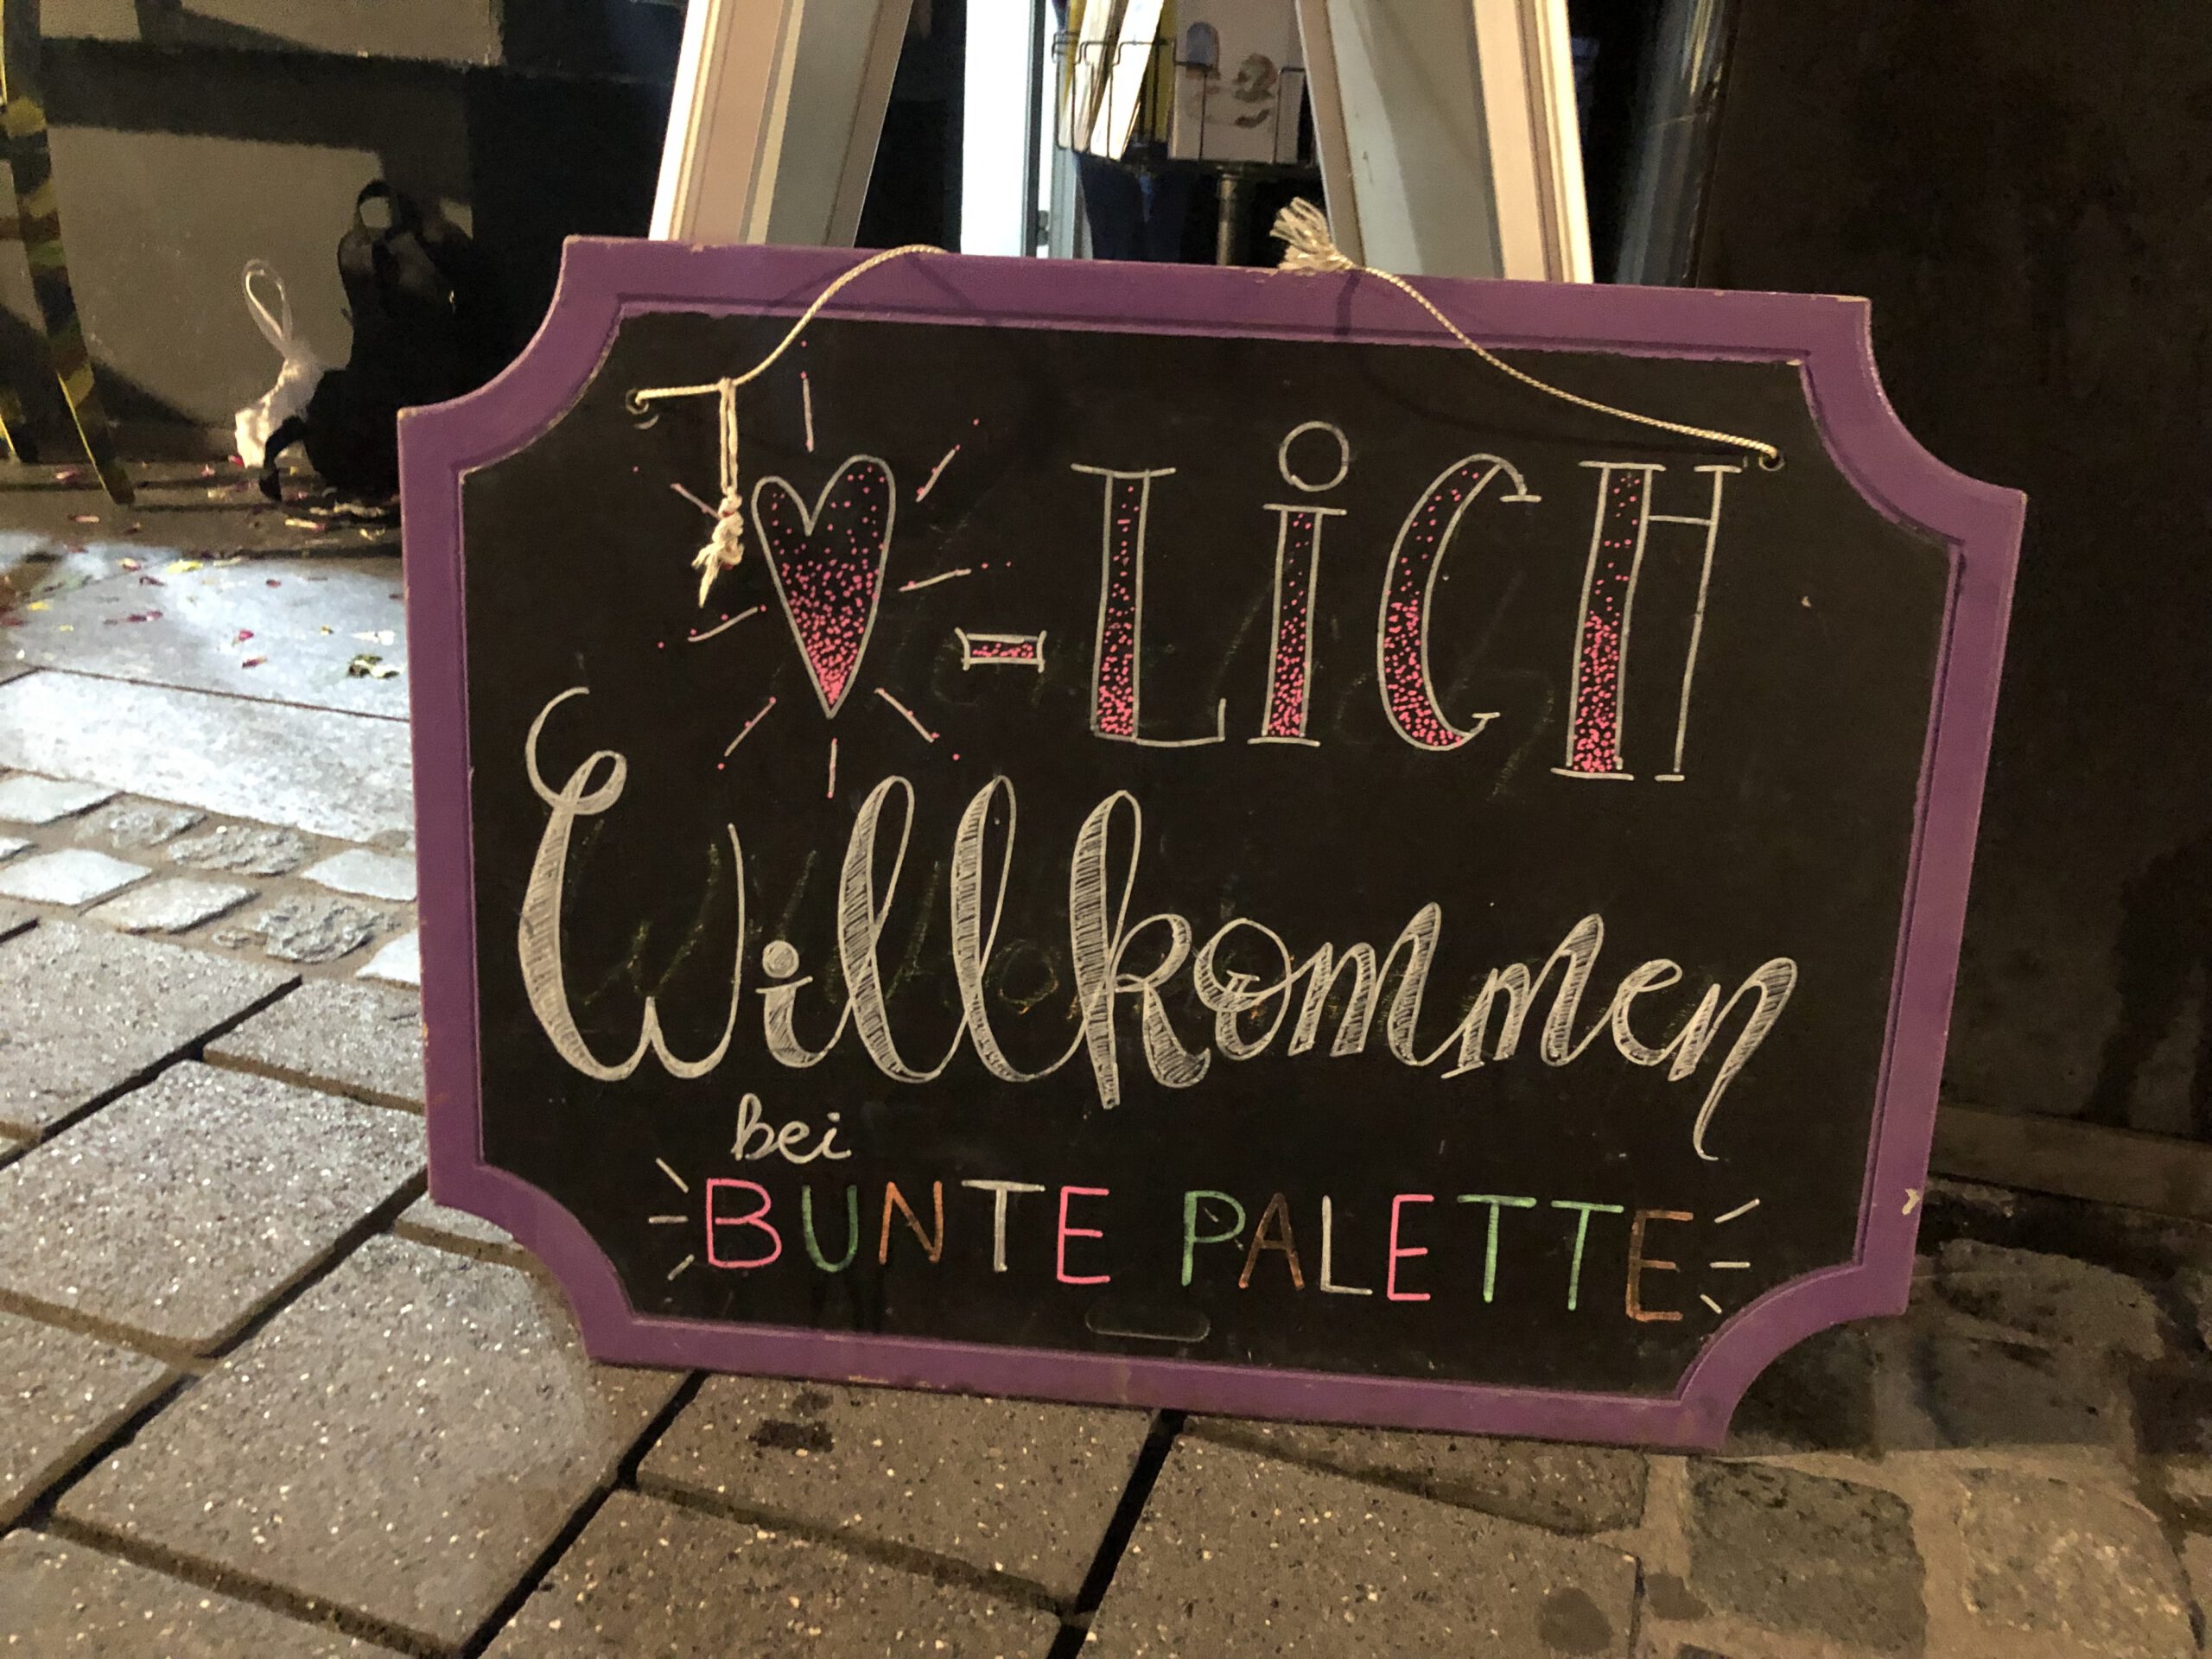 ♥-LiCH
Willkommen
bei
BUNTE PALETTE